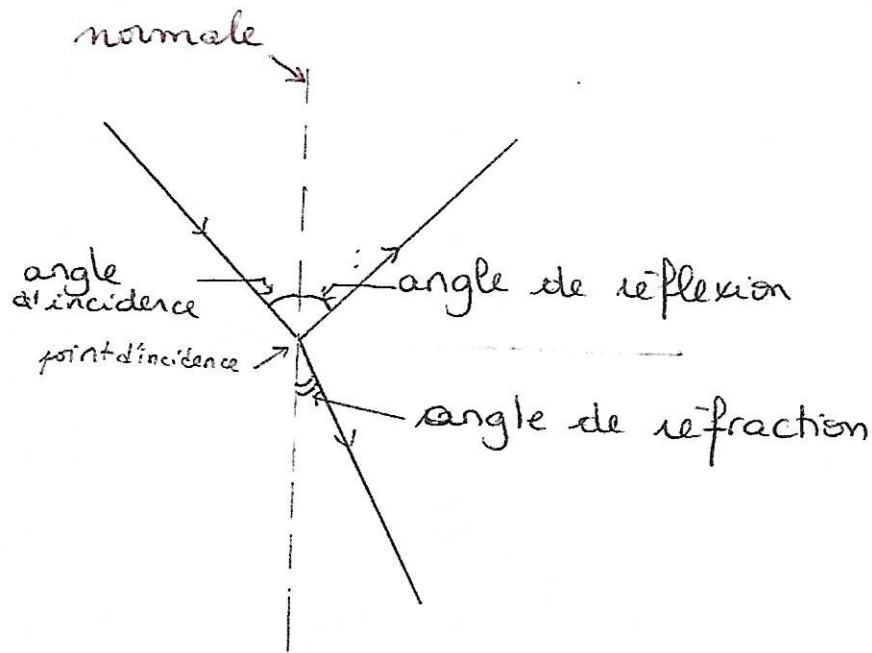 normale
angle
d'incidence
angle de réflexion
point d'incidence
angle de réfraction